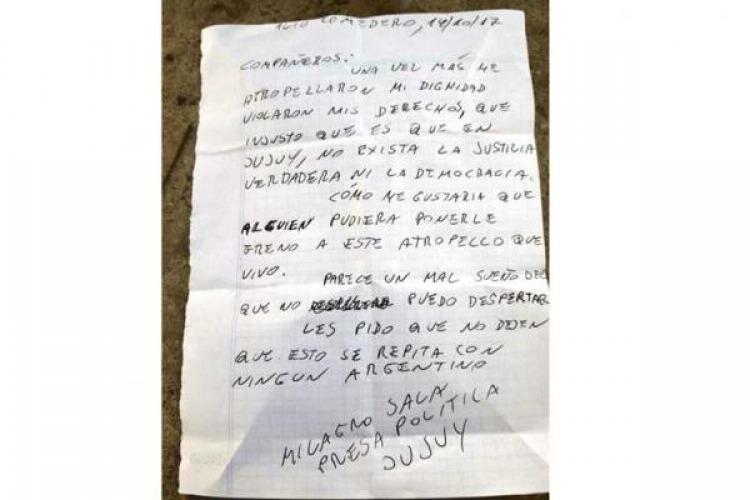 ALTO COMEDERO, 14/10/17
COMPAÑEROS:
UNA VEZ MÁS ME
ATROPELLARON MI DIGNIDAD
VIOLARON MIS DERECHOS, QUE
INJUSTO QUE ES QUE EN
JUJUY, NO EXISTA LA JUSTICIA
VERDADERA NI LA DEMOCRACIA.
CÓMO ME GUSTARIA QUE
ALGUIEN PUDIERA PONERLE
FRENO A ESTE ATROPELLO QUE
VIVO.
PARECE UN MAL SUEÑO DEL
QUE NO PUEDO DESPERTAR
LES PIDO QUE NO DEJEN
QUE ESTO SE REPITA CON
NINGUN ARGENTINO
MILAGRO SALA
PRESA POLÍTICA
JUJUY